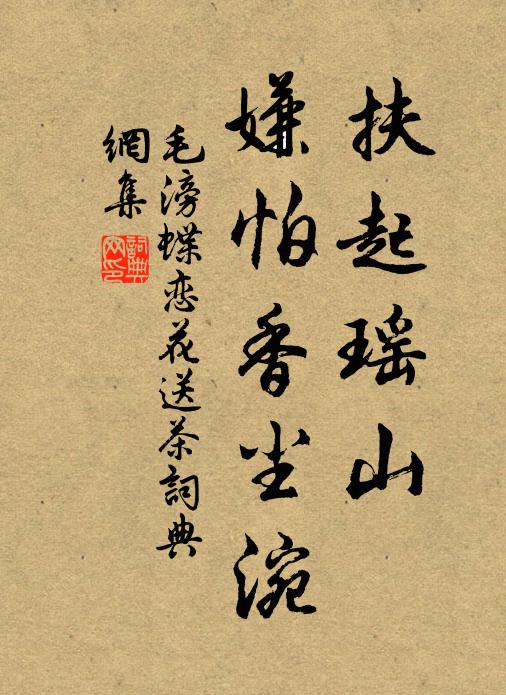 扶起瑶山
嫌怕香尘涴
毛滂蝶恋花送茶詞典
網集
詞典网印